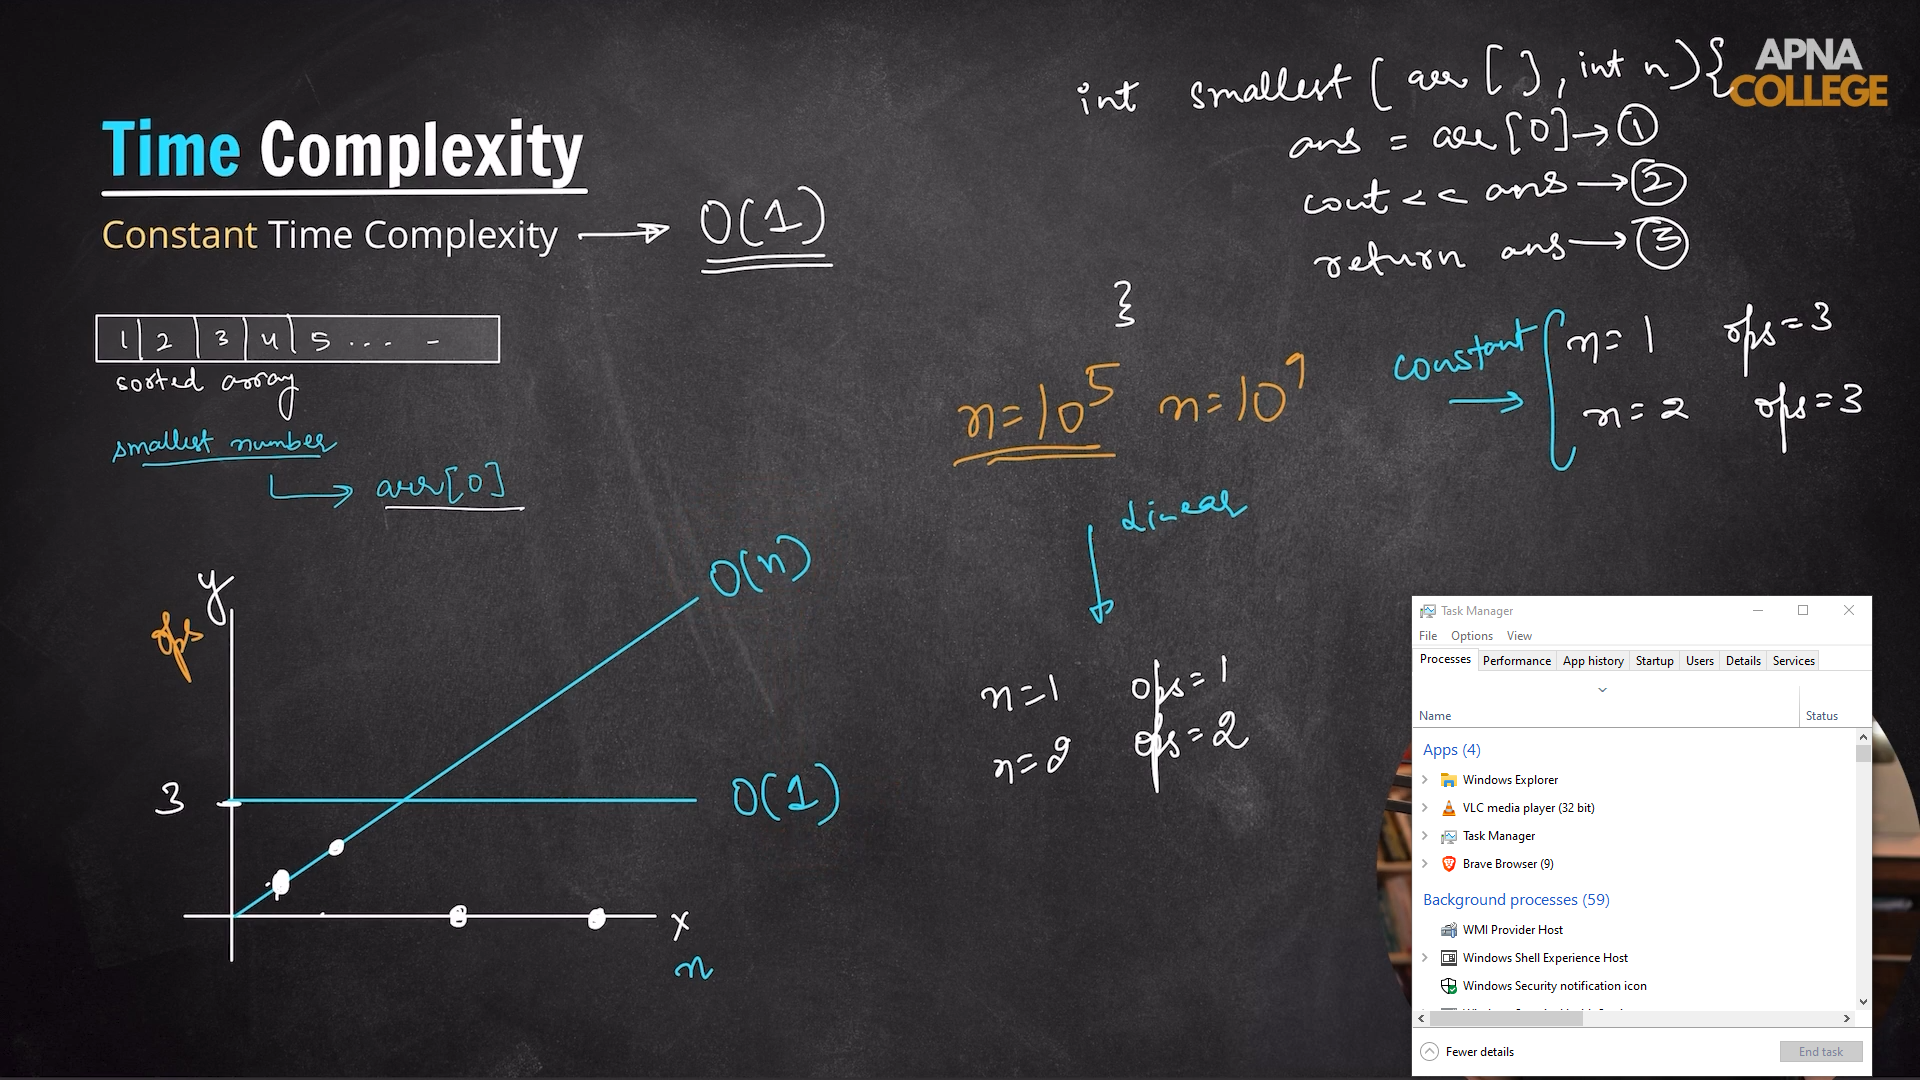 APNA
COLLEGE
Time Complexity
Constant Time Complexity → O(1)
int smallest ( arr [ ] , int n ) {
ans = arr [0] → 1
cout << ans → 2
return ans → 3
}
1 2 3 4 5 . . . . -
sorted array
smallest number
arr[0]
n=10^5 n=10^9
constant
n = 1 ops=3
n = 2 ops=3
Linear
n=1 ops=1
n=2 ops=2
y
ops
O(n)
3
O(1)
x
n
Task Manager
File Options View
Processes Performance App history Startup Users Details Services
Name Status
Apps (4)
Windows Explorer
VLC media player (32 bit)
Task Manager
Brave Browser (9)
Background processes (59)
WMI Provider Host
Windows Shell Experience Host
Windows Security notification icon
Fewer details End task